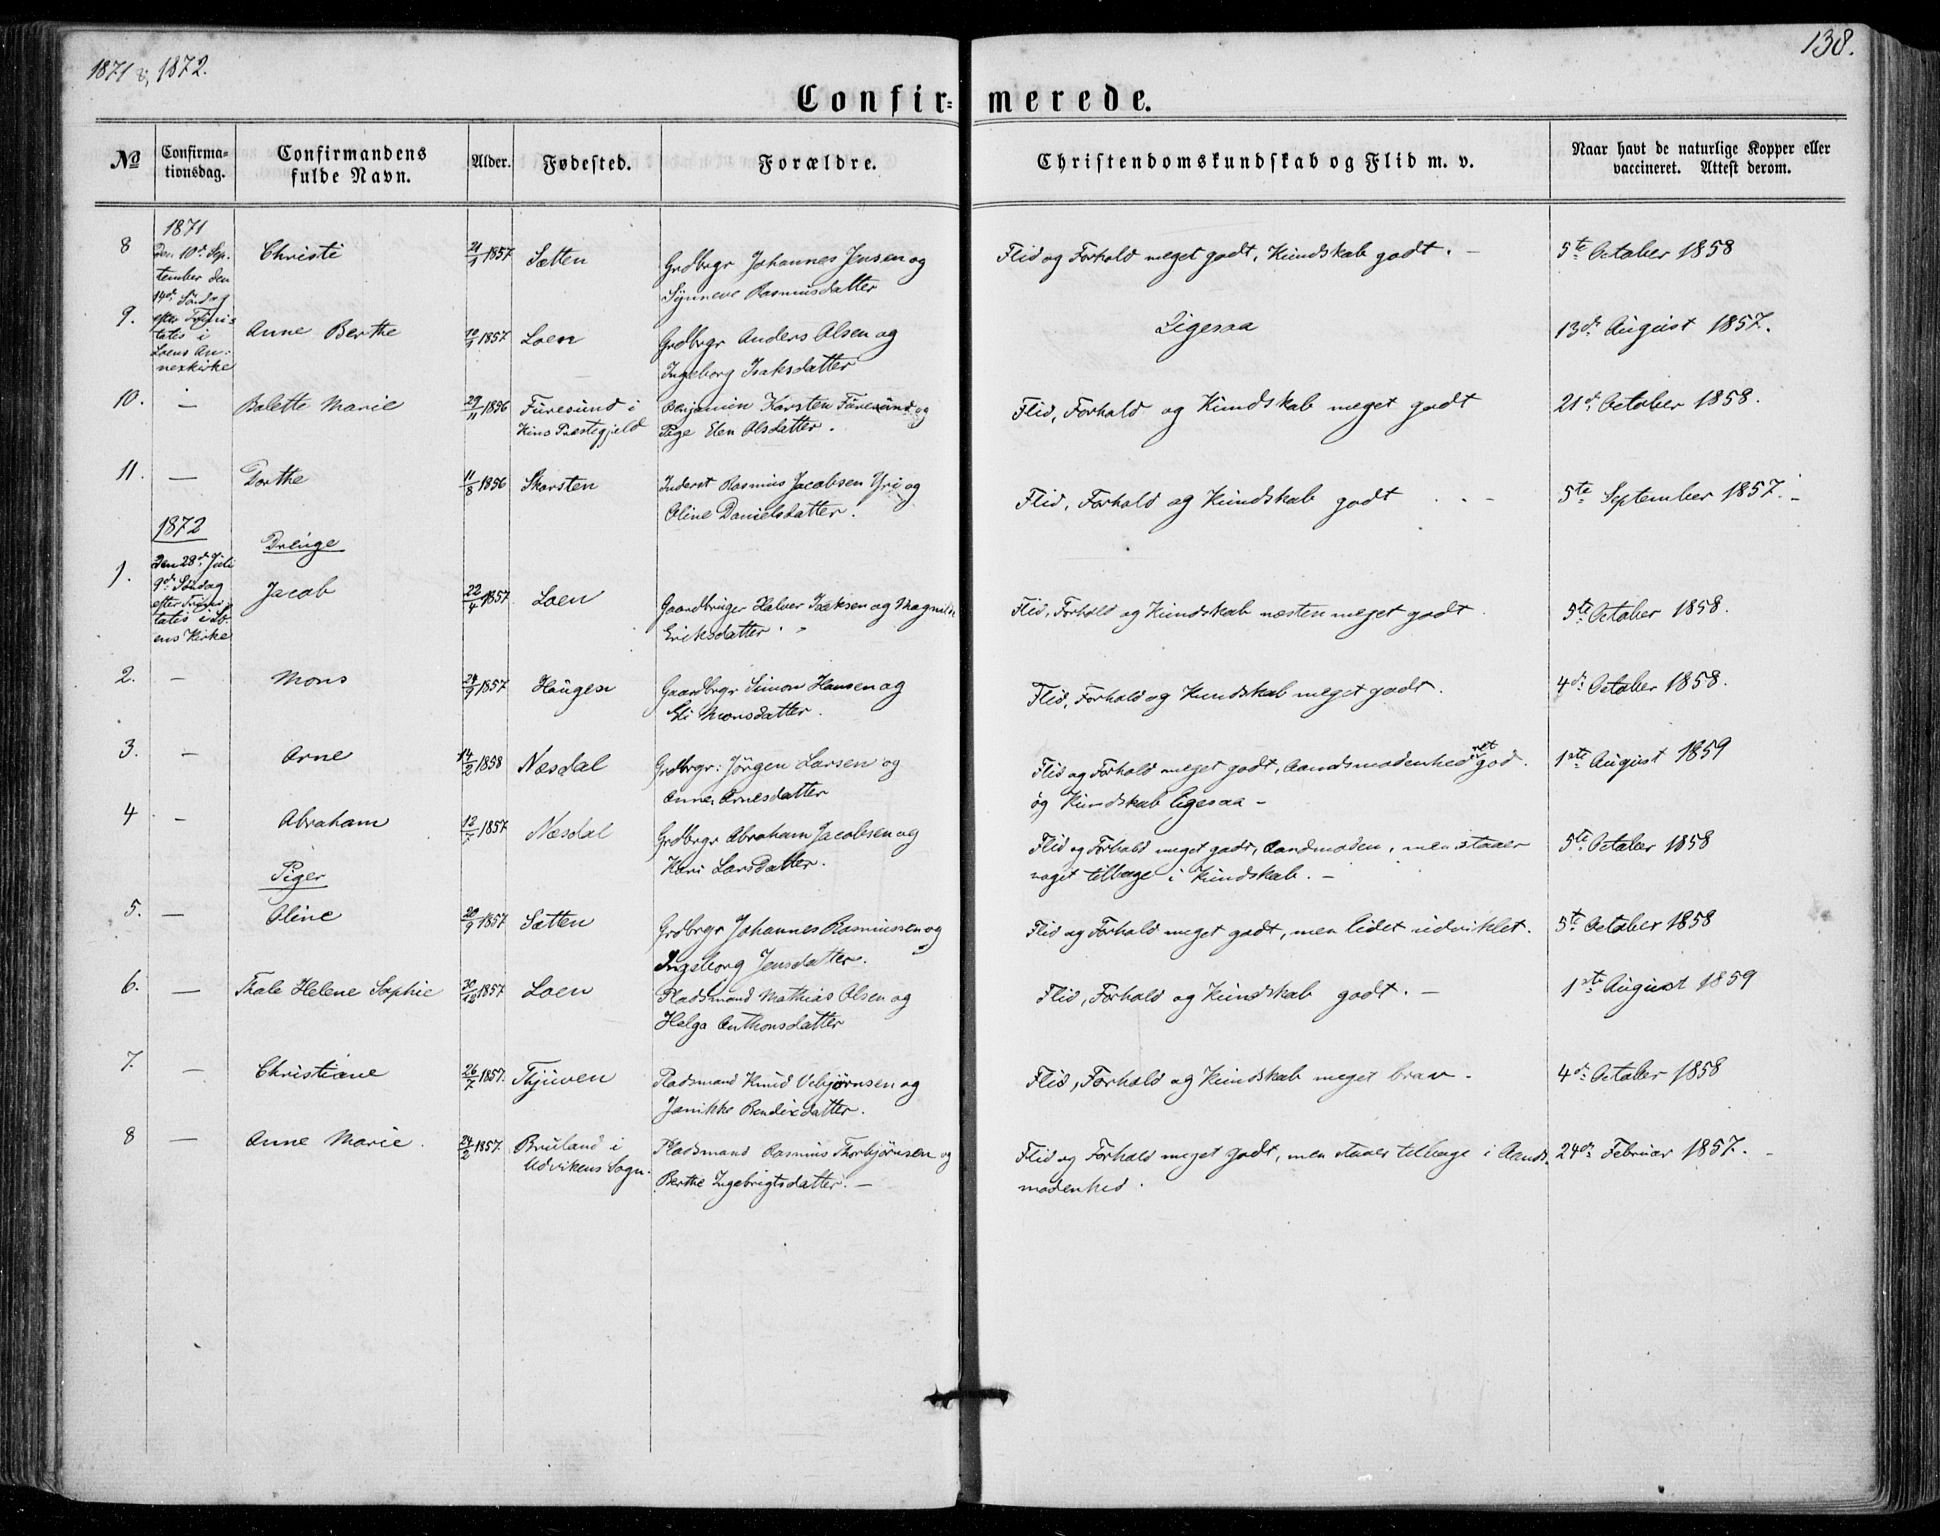 1871 & 1872.
138.
Confir- merede.
No
Confirma-
tionsdag.
Confirmandens
fulde Navn.
Alder.
Fødested.
Forældre.
Christendomskundskab og Flid m. v.
Naar havt de naturlige Kopper eller
vaccineret. Attest derom.
1871
8 Den 10de Sep- Christi 21/1 1857 Sætten Grdbrgr Johannes Jensen og Flid og Forhold meget godt, Kundskab godt. – 5te October 1858
tember den Synneve Rasmusdatter
14de Søndag
9. efter Trini= Anne Berthe 1857 Loen Grdbrgr Anders Olsen og Ligesaa 13de August 1857.
tatis i
Loens An- Ingeborg Isaksdatter
nexkirke
10. – Balette Marie 29/11 1856 Furesund i Benjamin Karsten Furesund og Flid, Forhold og Kundskab meget godt 21de October 1858.
Kins Præstegjeld Pige Elen Olsdatter.
11. – Dorthe 11/8 1856 Skarsten Inderst Rasmus Jacobsen Yri og Flid, Forhold og Kundskab godt – 5te September 1857. –
Oline Danielsdatter.
1872
Drenge
1. Den 28de Juli Jacob 22/4 1857 Loen Gaardbruger Halvor Isaksen og Magnilde Flid, Forhold og Kundskab næsten meget godt. 5te October 1858.
9de Søndag Eriksdatter.
efter Trini-
tatis i
ens Kirke
2. – Mons 24/9 1857 Haugen Gaardbrgr Simon Hansen og Flid, Forhold og Kundskab meget godt. 4de October 1858.
Eli Monsdatter.
3. – Arne 14/2 1858 Næsdal Grdbrgr: Jörgen Larsen og Flid og Forhold meget godt, Aandsmodenhed ret god. 1ste August 1859
Anne Arnesdatter og Kundskab ligesaa –
4 – Abraham 1857 Næsdal Grdbrgr Abraham Jacobsen og Flid og Forhold meget godt, Aandmoden, men staaer 5te October 1858
Kari Larsdatter. noget tilbage i Kundskab. –
Piger
5. – Oline 20/9 1857 Sætten Grdbrgr Johannes Rasmussen og Flid og Forhold meget godt, men lidet udviklet. 5te October 1858
Ingeborg Jensdatter.
6. – Thale Helene Sophie 30/12 1857 Loen Pladsmand Mathias Olsen og Flid, Forhold og Kundskab godt. – 1ste August 1859
Helga Anthonsdatter
7. – Christiane 26/7 1857. Thjuven Pladsmand Knud Vebjørnsen og Flid, Forhold og Kundskab meget brav. 4de October 1858
Janikke Bendixdatter.
8 – Anne Marie. 24/2 1857. Bruland i Pladsmand Rasmus Thorbjørnsen og Flid og Forhold meget godt, men staaer tilbage i Aands- 24de Februar 1857. –
Udvikens Sogn. Berthe Ingebrigtsdatter. – modenhed.